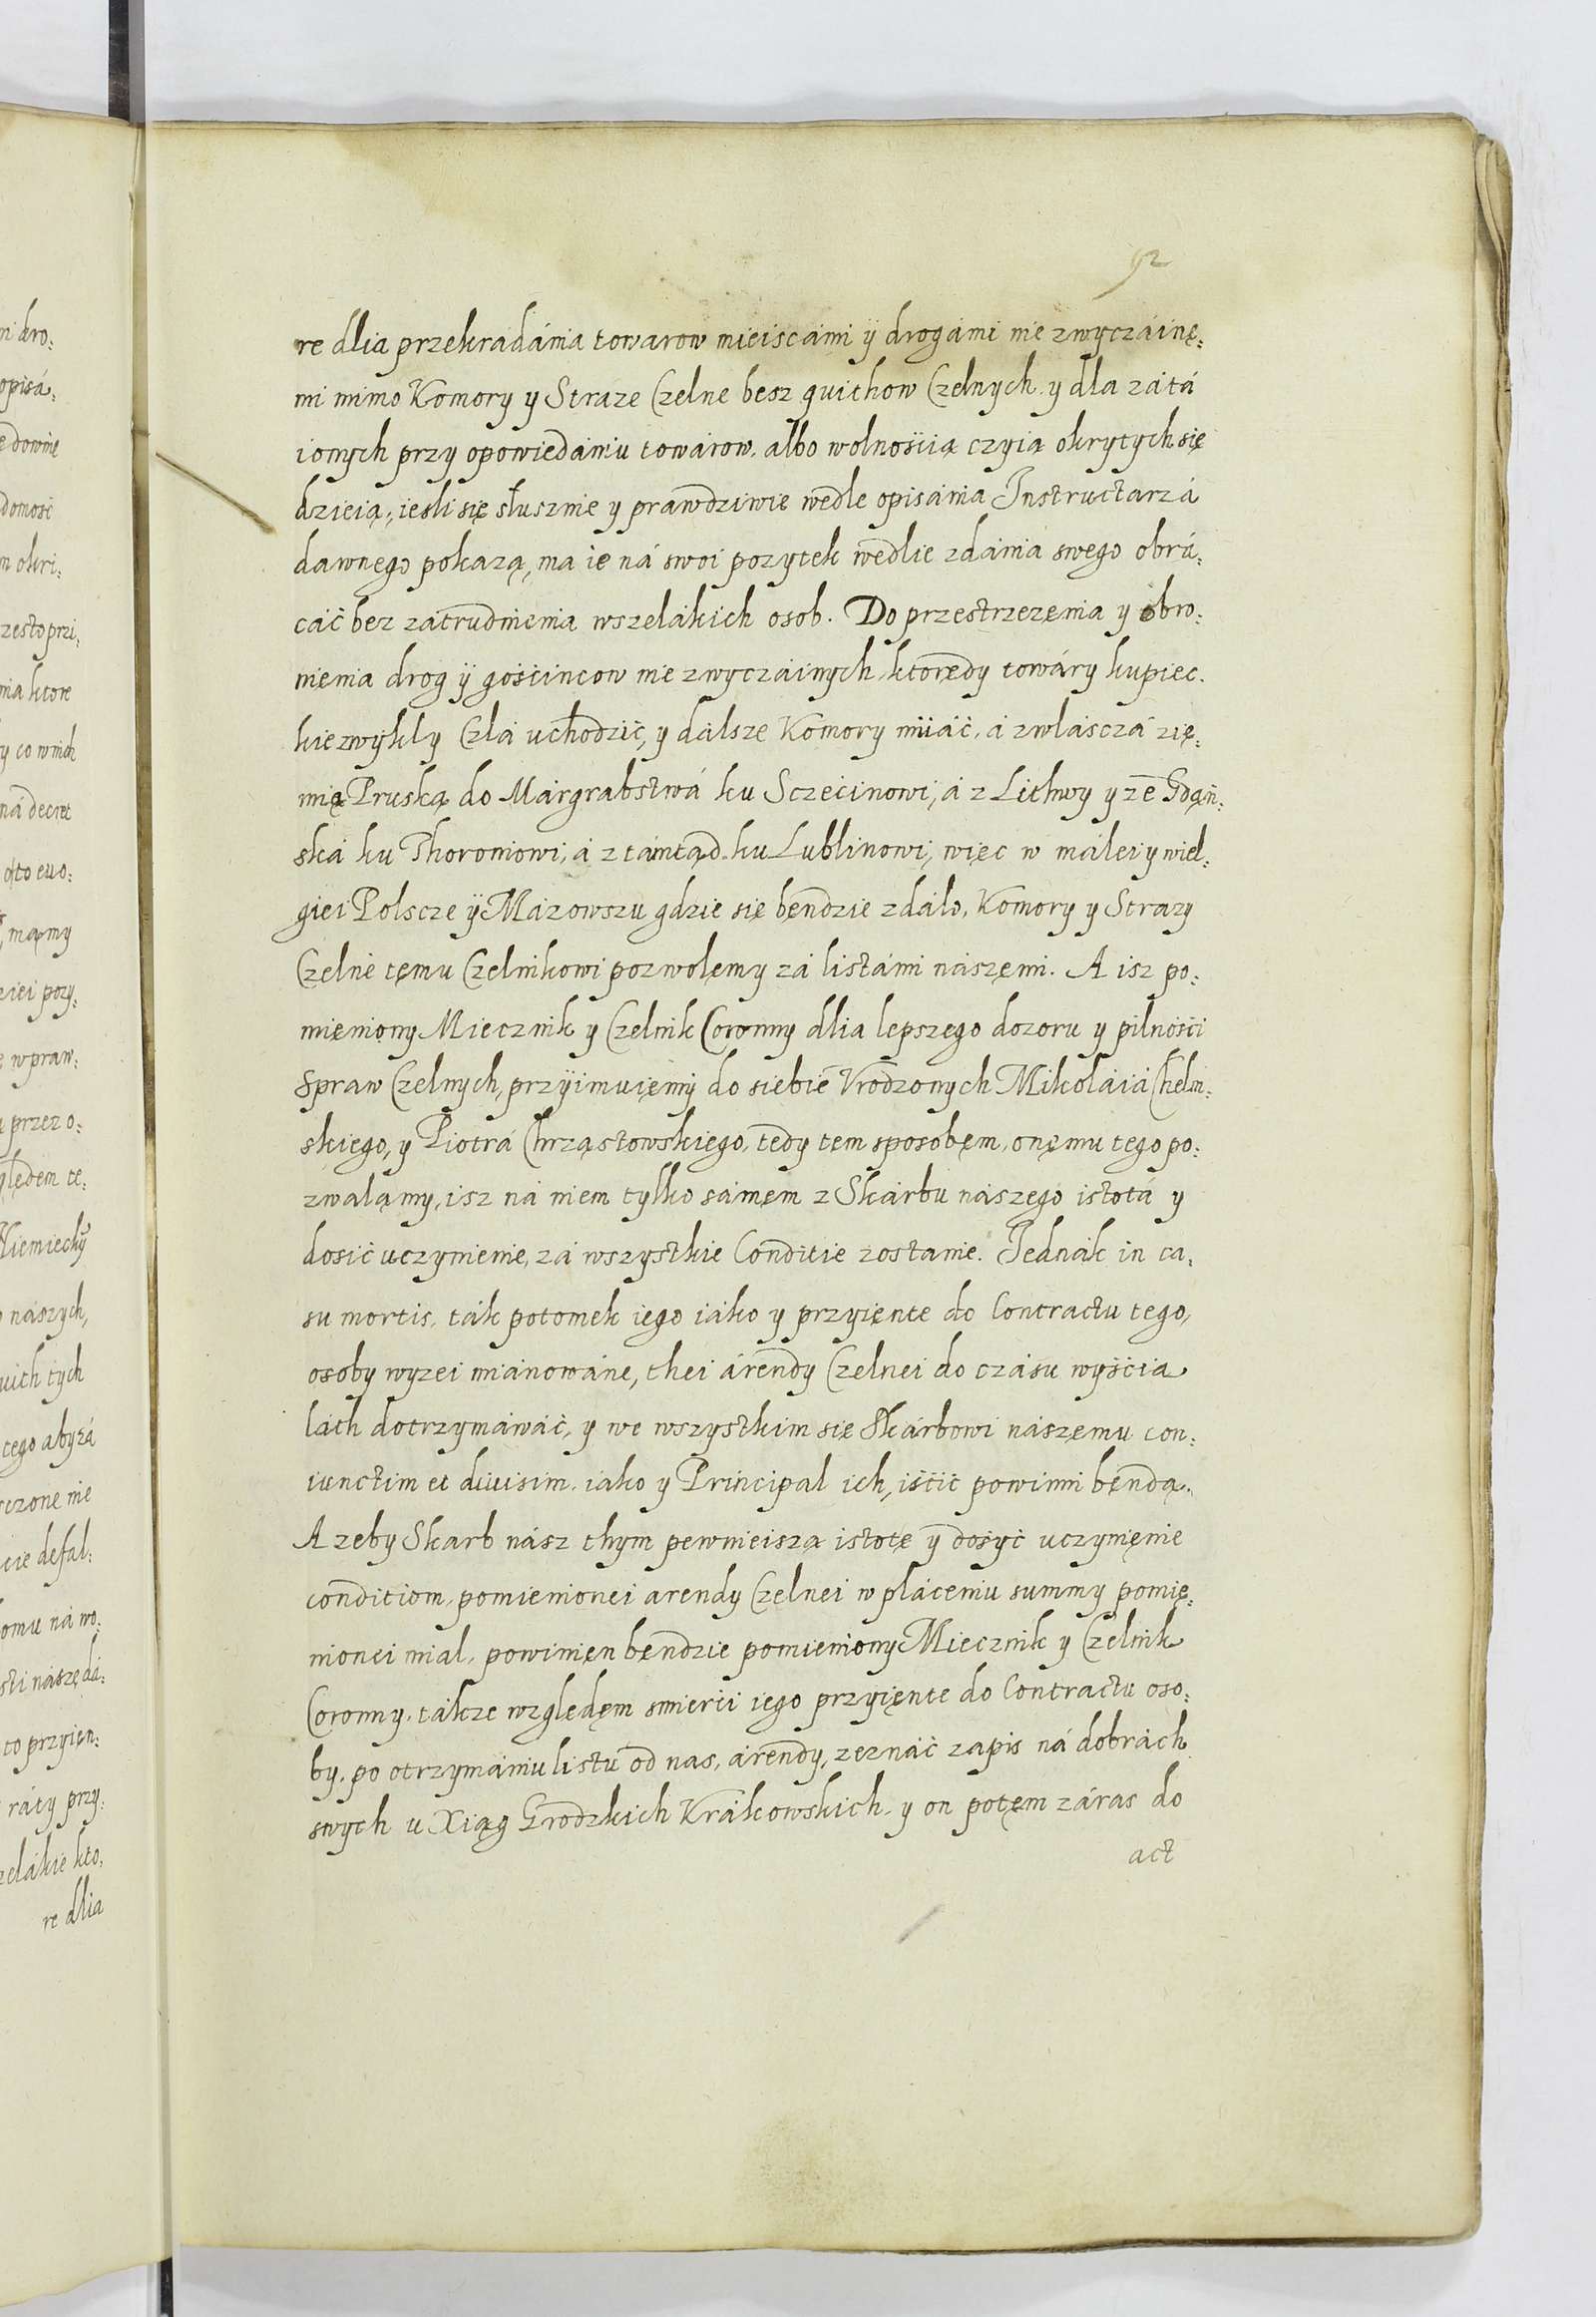 92
re dlia przekradánia towarow mieiscami ÿ drogámi nie zwyczáinę:
mi mimo Komory y Straze Czelne besz quithow Czelnych y dla zátá
ionych przy opowiedaniu towárow, albo wolnośćią czyią okrytych się
dzieią, iesli się słusznie y prawdziwie wedle opisánia Instructarzá
dawnego pokazą, ma ie ná swoi pozytek wedlie zdánia swego obrá:
cáć bez zatrudnienia wszelákich osob. Do przestrzezęnia y obro:
nięnia drog ÿ gośćincow nie zwyczáinych, ktorędy towáry kupiec:
kie zwykly Czlá uchodzić, y dálsze Komory miiáć, á zwlasczá zię:
mią Pruską do Márgrabstwá ku Sczećinowi, á z Lithwy y ze Gdąń:
ská ku Thoroniowi, á z támtąd ku Lublinowi, więc w máłei y wiel:
giei Polscze ÿ Mázowszu gdzie się będzie zdáło, Komory y Strazy
Czelne tęmu Czelnikowi pozwolęmy zá listámi nászęmi. A isz po:
mięniony Miecznik y Czelnik Coronny dlia lepszego dozoru y pilnośći
spraw Czelnych, przyimuięmy do siebie Vrodzonych Mikołáiá Chełm:
skiego, y Piotrá Chrząstowskiego, tedy tem sposobęm, onęmu tego po:
zwalamy, isz ná niem tylko sámęm z Skárbu nászego istotá y
dosić uczynienie, zá wszystkie Conditie zostanie. Jednák in ca:
su mortis, ták potomek iego iáko y przyięnte do Contractu tego,
osoby wyzei miánowáne, thei árendy Czelnei do czásu wyśćia
lath dotrzymáwáć, y we wszystkim się Skárbowi nászęmu con:
iunctim et diuisim, iako y Principal ich, iśćić powinni będą.
A zeby Skarb nász thym pewnieiszą istotę y dosyć uczynięnie
conditiom pomienionei arendy Czelnei w płáceniu summy pomię:
nionei miał, powinięn będzie pomieniony Miecznik y Czelnik
Coronny, tákze względęm smierći iego przyięnte do Contractu oso:
by, po otrzymániu listu od nas, árendy, zeznáć zapis ná dobrách
swych u Xiąg Grodzkich Krákowskich, y on potęm záras do
act